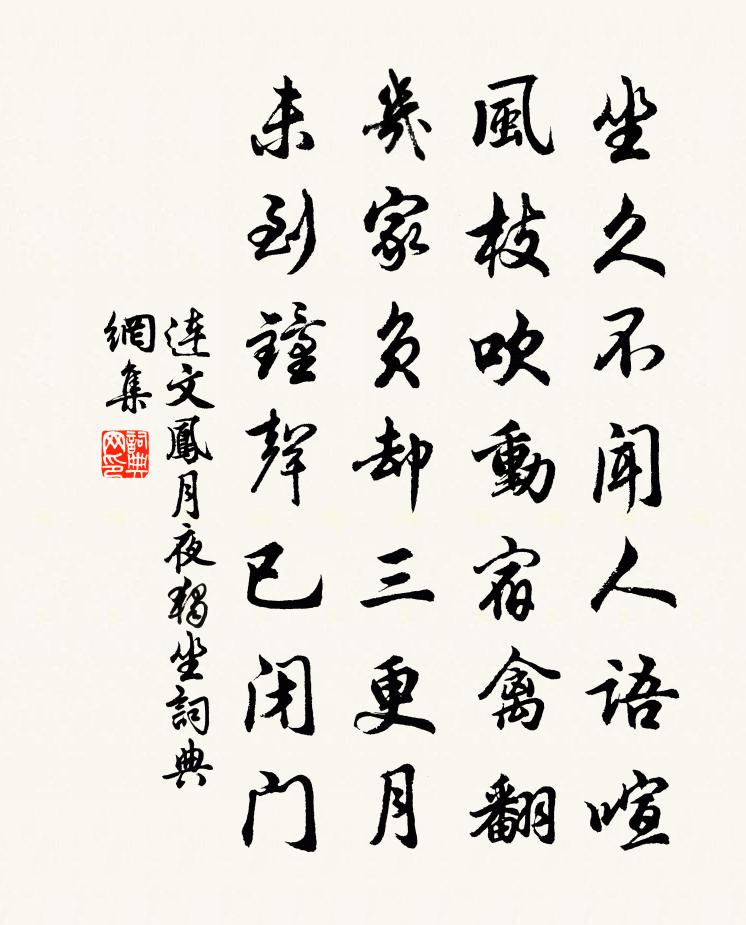 坐久不聞人語喧
風枝吹動宿禽翻
幾家負却三更月
未到鐘聲已閉門
連文鳳月夜獨坐詞典
網集
詞典網印